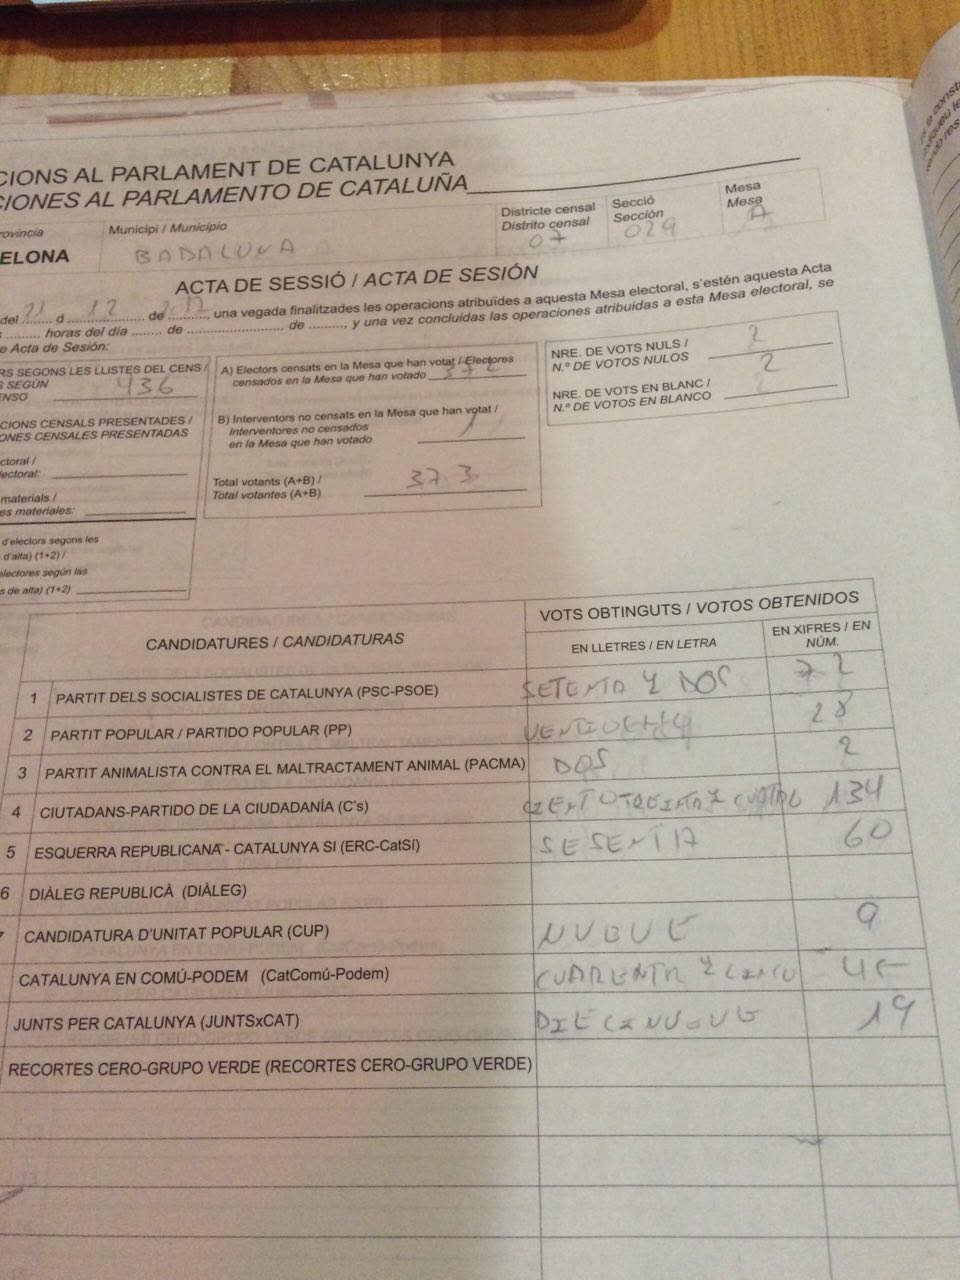 CIONS AL PARLAMENT DE CATALUNYA
CIONES AL PARLAMENTO DE CATALUÑA
rovincia
ELONA
Municipi / Municipio
BADALUNA
Districte censal
Distrito censal
07
Secció
Sección
029
Mesa
Mesa
A
ACTA DE SESSIÓ / ACTA DE SESIÓN
del 21 d 12 de 2017, una vegada finalitzades les operacions atribuïdes a aquesta Mesa electoral, s'estén aquesta Acta
horas del día ........ de ........................ de ........., y una vez concluidas las operaciones atribuidas a esta Mesa electoral, se
e Acta de Sesión:
RS SEGONS LES LLISTES DEL CENS /
S SEGÚN
ENSO 436
CIONS CENSALS PRESENTADES /
ONES CENSALES PRESENTADAS
ctoral /
lectoral:
materials /
es materiales:
d'electors segons les
d'alta) (1+2) /
electores según las
s de alta) (1+2)
A) Electors censats en la Mesa que han votat / Electores
censados en la Mesa que han votado 372
B) Interventors no censats en la Mesa que han votat /
Interventores no censados
en la Mesa que han votado 1
Total votants (A+B) /
Total votantes (A+B) 373
NRE. DE VOTS NULS /
N.º DE VOTOS NULOS 2
NRE. DE VOTS EN BLANC /
N.º DE VOTOS EN BLANCO 2
CANDIDATURES / CANDIDATURAS
VOTS OBTINGUTS / VOTOS OBTENIDOS
EN LLETRES / EN LETRA
EN XIFRES / EN
NÚM.
1 PARTIT DELS SOCIALISTES DE CATALUNYA (PSC-PSOE) SETENTA Y DOS 72
2 PARTIT POPULAR / PARTIDO POPULAR (PP) VENTIOCHO 28
3 PARTIT ANIMALISTA CONTRA EL MALTRACTAMENT ANIMAL (PACMA) DOS 2
4 CIUTADANS-PARTIDO DE LA CIUDADANÍA (C's) CIENTOTREINTA Y CUATRO 134
5 ESQUERRA REPUBLICANA - CATALUNYA SI (ERC-CatSí) SESENTA 60
6 DIÀLEG REPUBLICÀ (DIÀLEG)
CANDIDATURA D'UNITAT POPULAR (CUP) NUEVE 9
CATALUNYA EN COMÚ-PODEM (CatComú-Podem) CUARENTA Y CINCO 45
JUNTS PER CATALUNYA (JUNTSxCAT) DIECINUEVE 19
RECORTES CERO-GRUPO VERDE (RECORTES CERO-GRUPO VERDE)